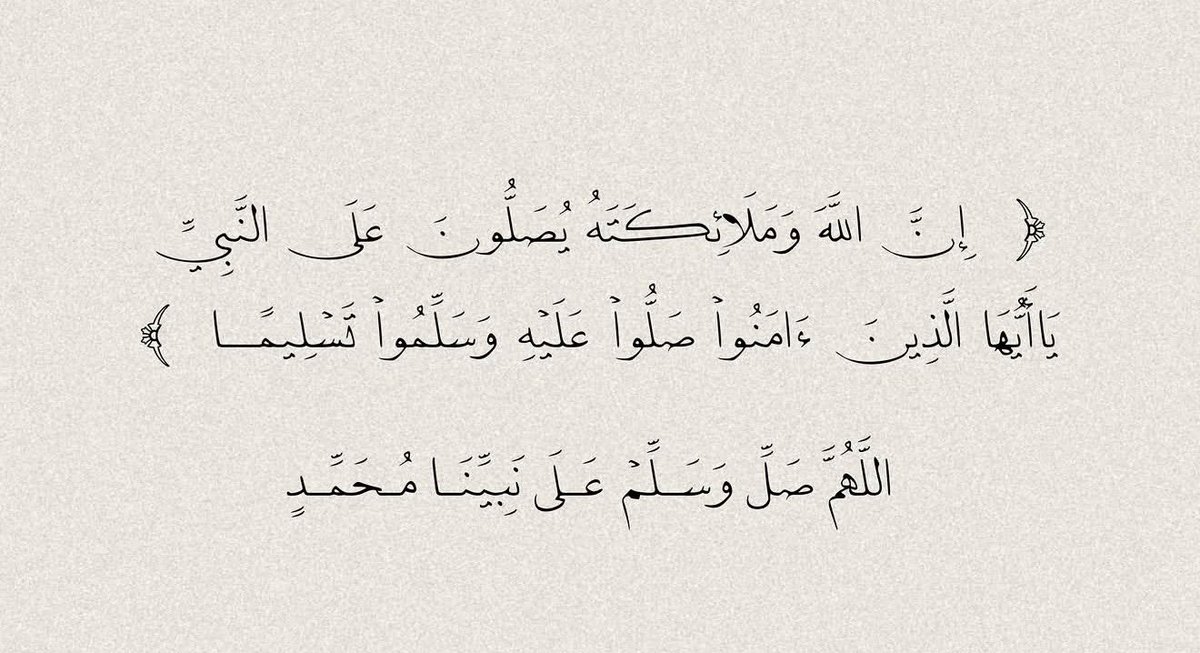 ﴿ إِنَّ اللَّهَ وَمَلَائِكَتَهُ يُصَلُّونَ عَلَى النَّبِيِّ
يَاأَيُّهَا الَّذِينَ ءَامَنُواْ صَلُّواْ عَلَيْهِ وَسَلِّمُواْ تَسْلِيمًا ﴾
اللَّهُمَّ صَلِّ وَسَلِّمْ عَلَى نَبِيِّنَا مُحَمَّدٍ